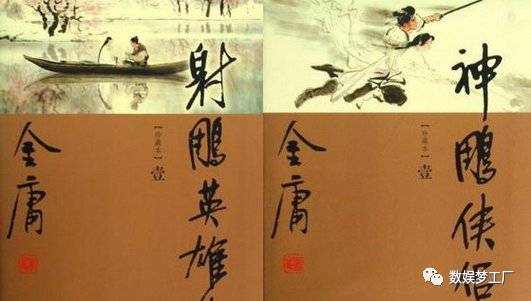 射鵰英雄
【珍藏本】壹
金庸
神鵰侠侣
【珍藏本】壹
金庸
数娱梦工厂